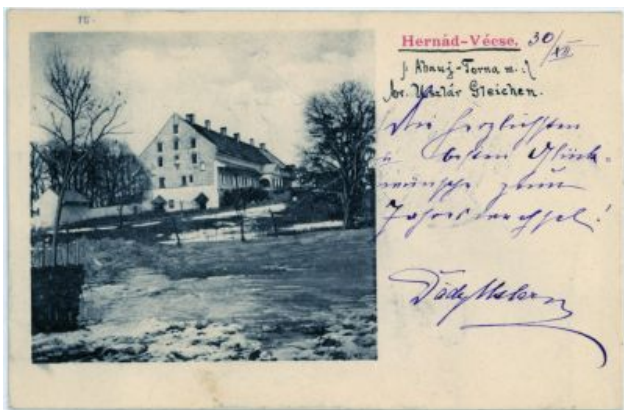 Hernád-Vécse. 30/XII
/: Abauj-Torna m. :/
br. Uszlár Gleichen.
Die herzlichsten
u besten Glück-
wünsche zum
Jahreswechsel!